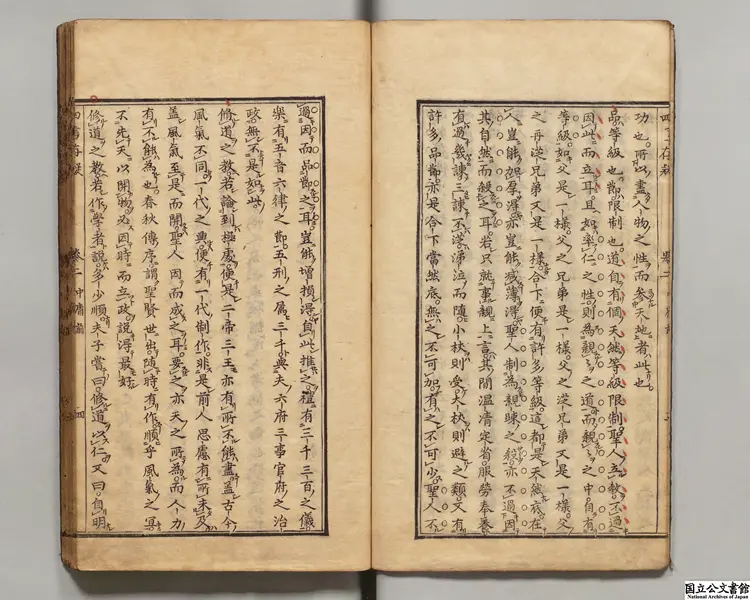 功也所以盡人物之性而參天地者此也
品等級也節限制也道自有個天然等級限制聖人立教不過
因此而立耳且如率仁之性則為親親之道而親親之中自有
等級如父是一樣父之兄弟是一樣父之從兄弟又是一樣父
之再從兄弟又是一樣合下便有許多等級這都是天然底在
人豈能加厚得亦豈能減薄得聖人制為親疎之殺亦不過因
其自然而殺之耳若只就事親上言其間溫凊定省服勞奉養
有過幾諫三諫不從涕泣而隨小杖則受大杖則避之類又有
許多品節亦是合下當然底無之不可加有之不可少聖人不
過因而品節之耳豈能增損得自此推之禮有三千三百之儀
樂有五音六律之節五刑之屬三千與夫六府三事官府之治
政無不是如此
修道之教若論到極處便是二帝三王亦有所不能盡蓋古今
風氣不同一代之興便有一代制作非是前人思慮有所未及
蓋風氣至是而開聖人因而成之耳要之亦天之所為而人力
有不能為也春秋傳序謂聖賢世出隨時有作順乎風氣之宜
不先天以開物各因時而立政說得最好
修道之教若作學者說多少順夫子嘗曰修道以仁又曰自明
四書存疑
卷二中庸
四
国立公文書館
National Archives of Japan